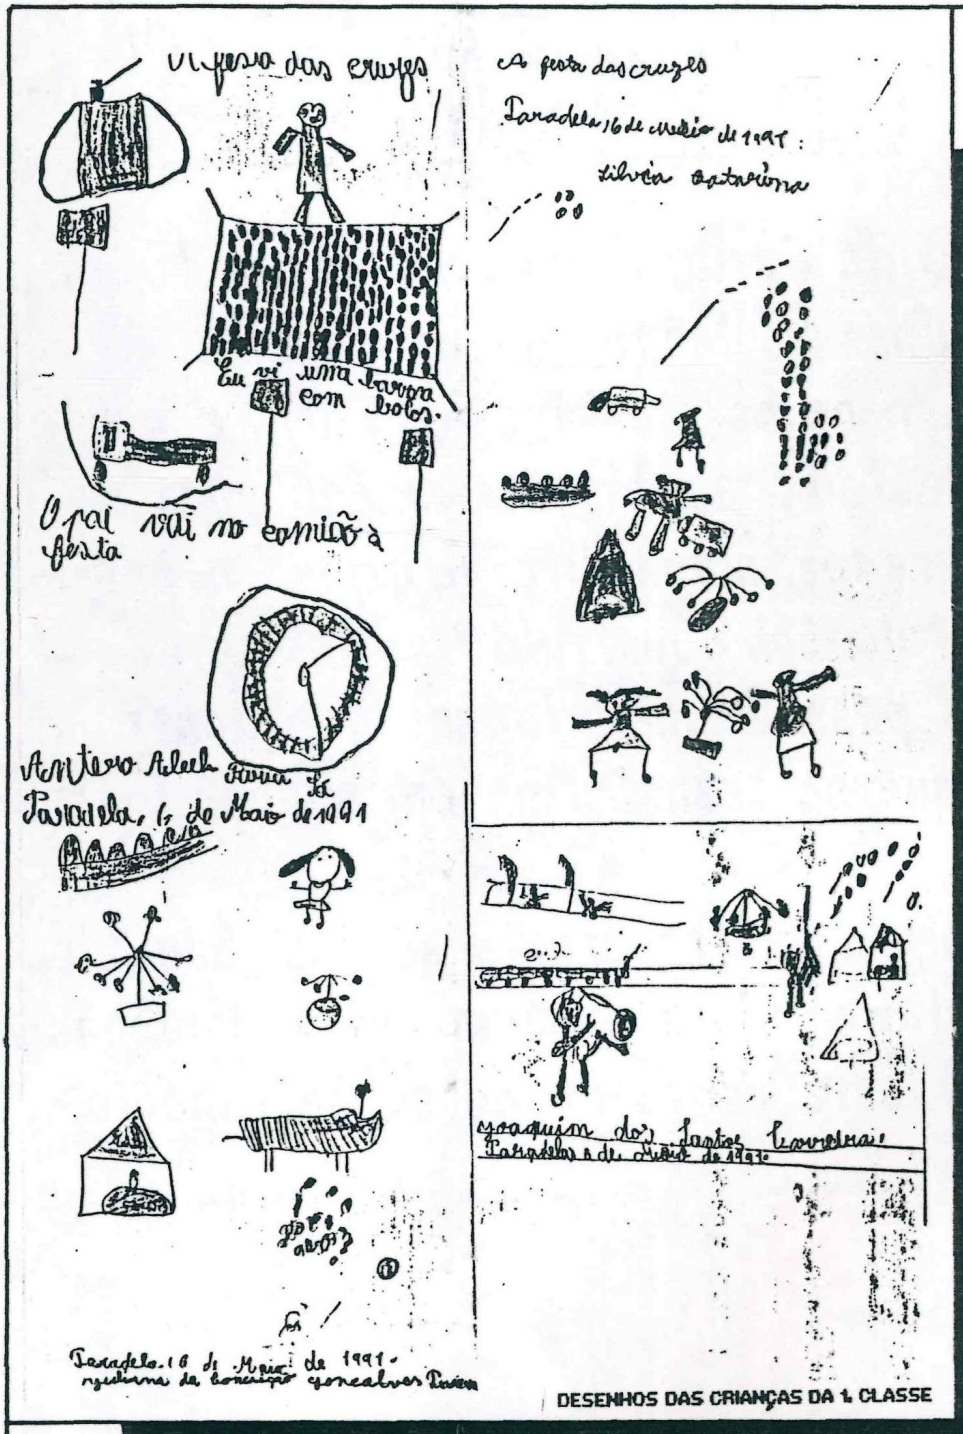 Vi festa das cruzes
Eu vi uma barraca
com bolos.
O pai vai no camião à
festa
Antero
Paradela, 6 de Maio de 1991
Paradela 16 de Maio de 1991.
da Conceição Gonçalves
A festa das cruzes
Paradela 16 de Maio de 1991.
Silvia Catarina
Joaquim dos Santos
Paradela 6 de Maio de 1991.
DESENHOS DAS CRIANÇAS DA 1. CLASSE